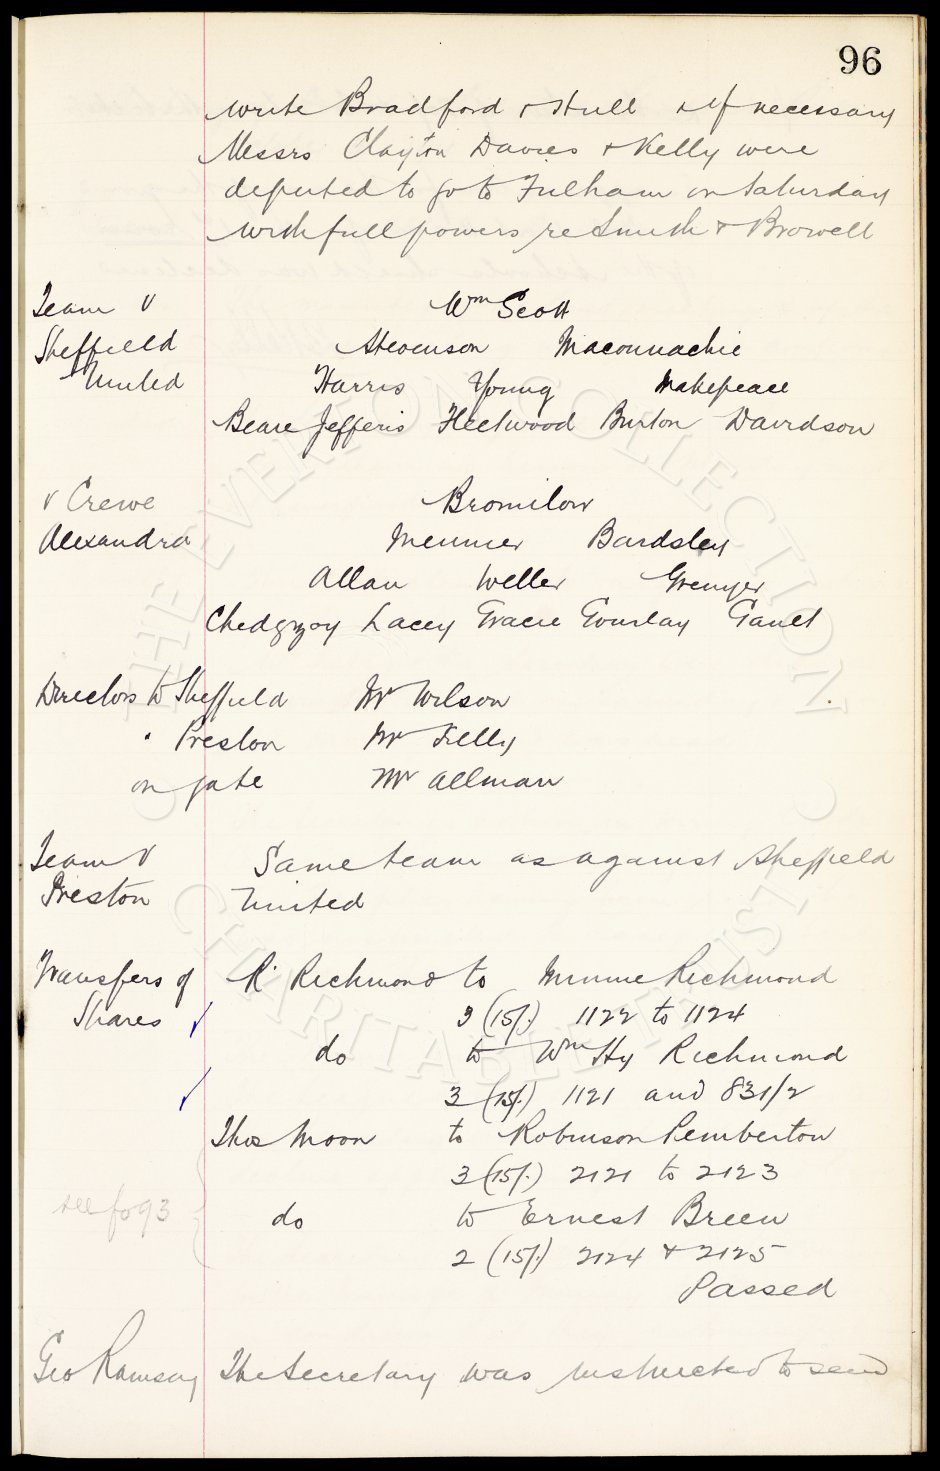 96
write Bradford & Hull & if necessary
Messrs Clayton Davies & Kelly were
deputed to go to Fulham on Saturday
with full powers re Smith & Browell
Team v Wm Scott
Sheffield Stevenson Maconnachie
United Harris Young Makepeace
Beare Jefferis Fleetwood Burton Davidson
v Crewe Bromilow
Alexandra Meunier Bardsley
Allan Weller Grenyer
Chedgzoy Lacey Gracie Gourlay Gault
Directors to Sheffield Mr Wilson
" Preston Mr Kelly
on gate Mr Allman
Team v Same team as against Sheffield
Preston United
Transfers of R. Richmond to Minnie Richmond
Shares 3 (15/.) 1122 to 1124
do to Wm Hy Richmond
3 (15/.) 1121 and 831/2
Thos Moon to Robinson Pemberton
3 (15/.) 2121 to 2123
see fo 93 do to Ernest Breen
2 (15/.) 2124 & 2125
Passed
Geo Ramsay The Secretary was instructed to send
THE EVERTON COLLECTION
CHARITABLE TRUST